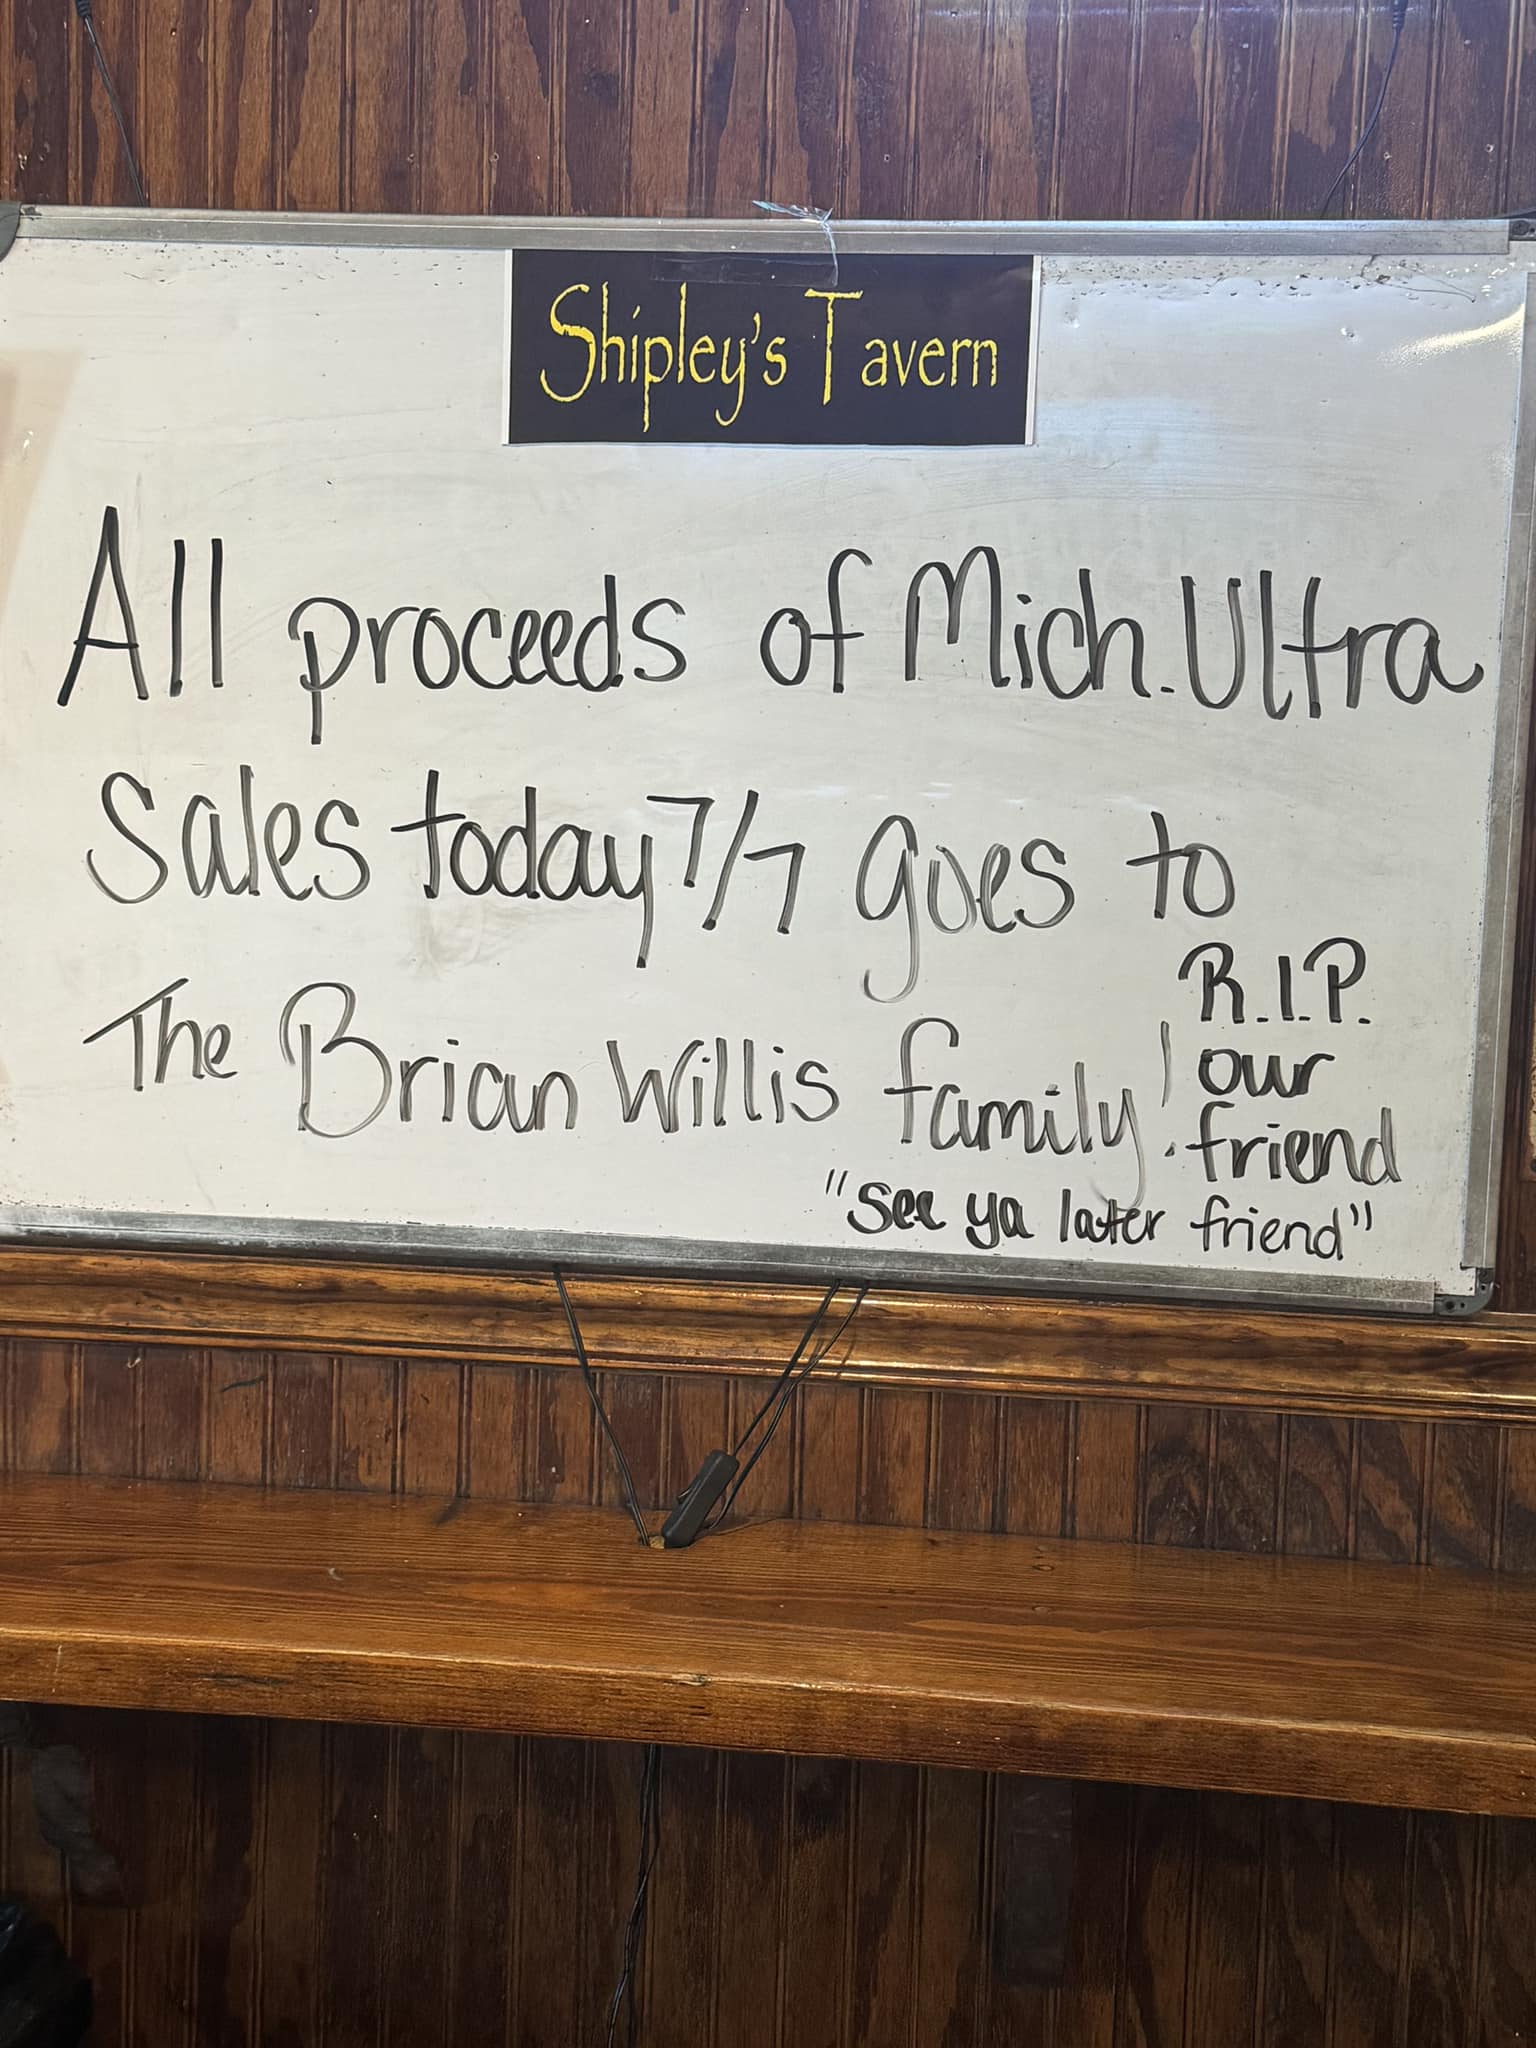 Shipley's Tavern
All proceeds of Mich. Ultra
Sales today 7/7 goes to
The Brian Willis family!
R.I.P.
our
friend
"See ya later friend"